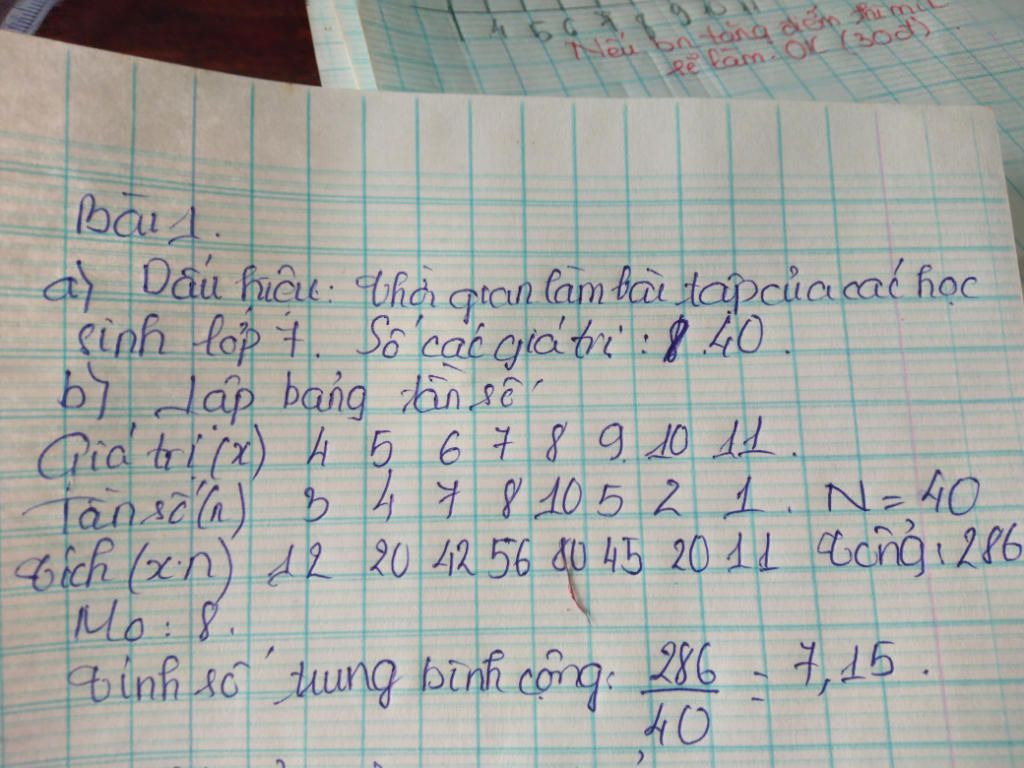 4 5 6 7 8 9 10 11
Nếu bn tăng điểm thi mik
sẽ làm. OK (30đ).
Bài 1.
a) Dấu hiệu: thời gian làm bài tập của các học
sinh lớp 7. Số các giá trị: 40.
b) Lập bảng tần số
Giá trị (x) 4 5 6 7 8 9 10 11.
Tần số (n) 3 4 7 8 10 5 2 1. N = 40
tích (x.n) 12 20 42 56 80 45 20 11 tổng: 286
Mo: 8.
tính số trung bình cộng: 286/40 = 7,15.